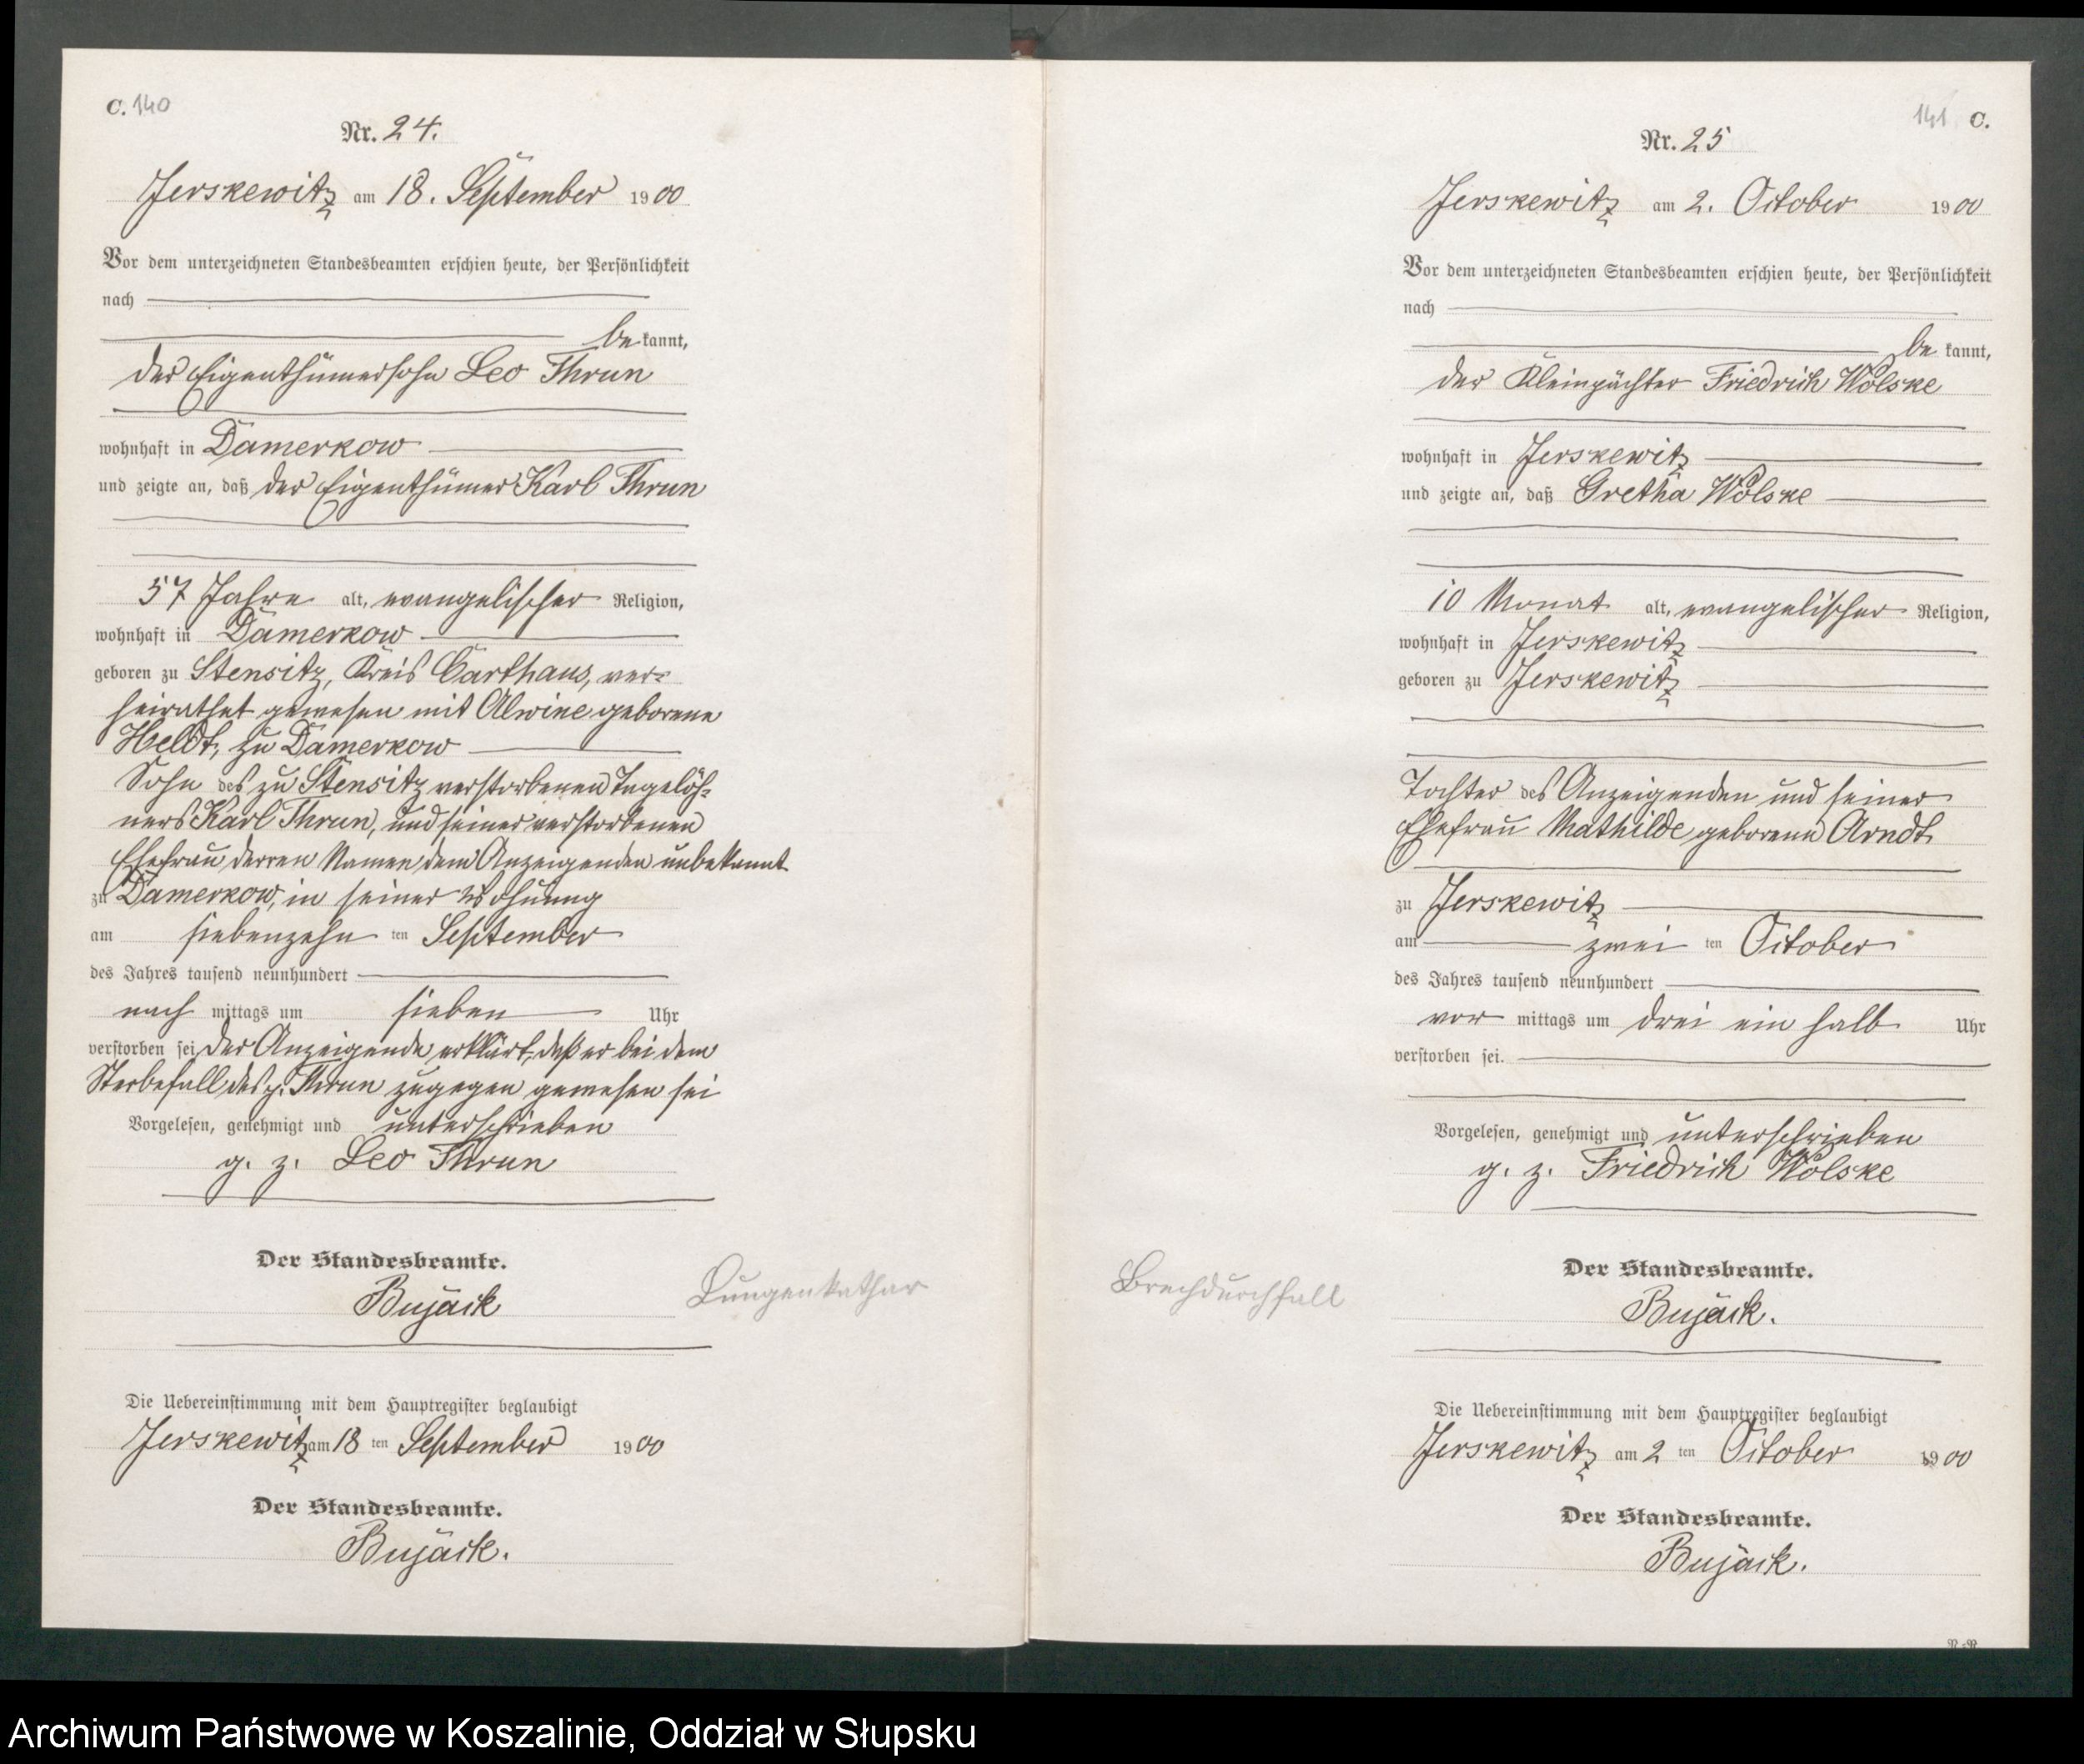 C. 140
Nr. 24.
Jerskewitz am 18. September 1900
Vor dem unterzeichneten Standesbeamten erschien heute, der Persönlichkeit
nach
be kannt,
der Eigenthümersohn Leo Thrun
wohnhaft in Damerkow
und zeigte an, daß der Eigenthümer Karl Thrun
57 Jahre alt, evangelischer Religion,
wohnhaft in Damerkow
geboren zu Stensitz, Kreis Carthaus, ver-
heirathet gewesen mit Alwine geborene
Heldt, zu Damerkow
Sohn des zu Stensitz verstorbenen Tagelöh-
ners Karl Thrun, und seiner verstorbenen
Ehefrau derren Namen dem Anzeigenden unbekannt
zu Damerkow, in seiner Wohnung
am siebenzehn ten September
des Jahres tausend neunhundert
nach mittags um sieben Uhr
verstorben sei, der Anzeigende erklärt, daß er bei dem
Sterbefall des p. Thrun zugegen gewesen sei
Vorgelesen, genehmigt und unterschrieben
g. z. Leo Thrun
Der Standesbeamte.
Bujack
Lungenkathar
Die Uebereinstimmung mit dem Hauptregister beglaubigt
Jerskewitz am 18 ten September 1900
Der Standesbeamte.
Bujack.
141 C.
Nr. 25
Jerskewitz am 2. October 1900
Vor dem unterzeichneten Standesbeamten erschien heute, der Persönlichkeit
nach
be kannt,
der Kleinpächter Friedrich Wolske
wohnhaft in Jerskewitz
und zeigte an, daß Gretha Wolske
10 Monat alt, evangelischer Religion,
wohnhaft in Jerskewitz
geboren zu Jerskewitz
Tochter des Anzeigenden und seiner
Ehefrau Mathilde geborene Arndt
zu Jerskewitz
am zwei ten October
des Jahres tausend neunhundert
vor mittags um drei ein halb Uhr
verstorben sei.
Vorgelesen, genehmigt und unterschrieben
g. z. Friedrich Wolske
Der Standesbeamte.
Bujack.
Brechdurchfall
Die Uebereinstimmung mit dem Hauptregister beglaubigt
Jerskewitz am 2 ten October 1900
Der Standesbeamte.
Bujack.
Archiwum Państwowe w Koszalinie, Oddział w Słupsku